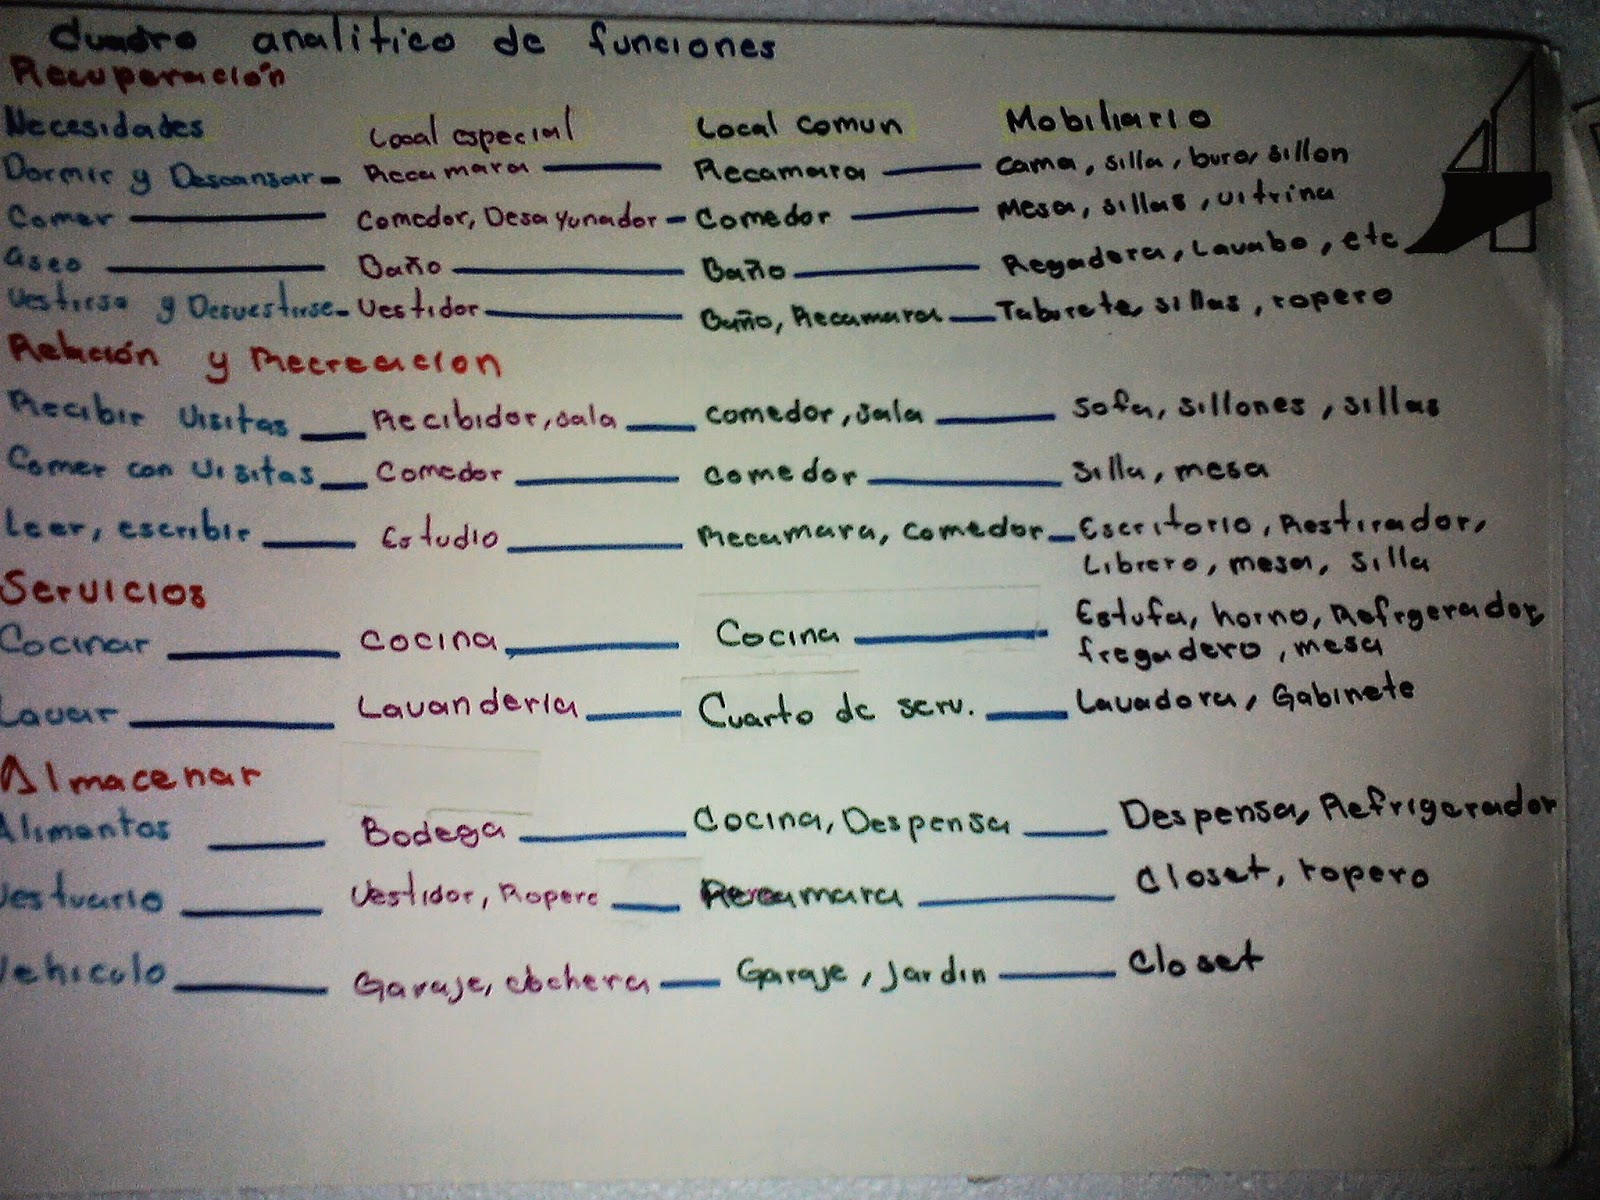 Cuadro analitico de funciones
Recuperación
Necesidades Local especial Local comun Mobiliario
Dormir y Descansar Recamara Recamara cama, silla, buro, sillon
Comer Comedor, Desayunador Comedor Mesa, sillas, vitrina
aseo Baño Baño Regadera, Lavabo, etc
Vestirse y Desvestirse Vestidor Baño, Recamara Taburete, sillas, ropero
Relación y Recreacion
Recibir Visitas Recibidor, sala comedor, sala Sofa, sillones, sillas
Comer con Visitas Comedor comedor silla, mesa
Leer, escribir Estudio Recamara, comedor Escritorio, Restirador,
Librero, mesa, silla
Servicios
Cocinar Cocina Cocina Estufa, horno, Refrgerador,
fregadero, mesa
Lavar Lavanderia Cuarto de serv. Lavadora, Gabinete
Almacenar
Alimentos Bodega Cocina, Despensa Despensa, Refrigerador
Vestuario Vestidor, Ropero Recamara closet, ropero
Vehiculo Garaje, cochera Garaje, jardin closet